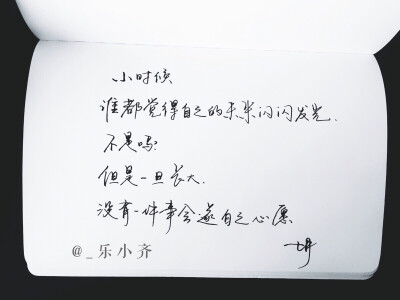 小时候
谁都觉得自己的未来闪闪发光.
不是吗?
但是一旦长大.
没有一件事会遂自己心愿
@_乐小齐